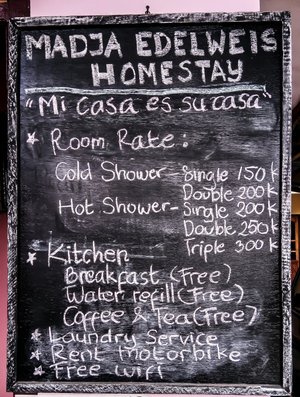 MADJA EDELWEIS
HOMESTAY
"Mi casa es su casa"
* Room Rate :
Cold Shower - Single 150 K
Double 200 K
Hot Shower - Single 200 K
Double 250 K
Triple 300 K
* Kitchen
Breakfast (Free)
Water refill (Free)
Coffee & Tea (Free)
* Laundry Service
* Rent motorbike
* Free wifi